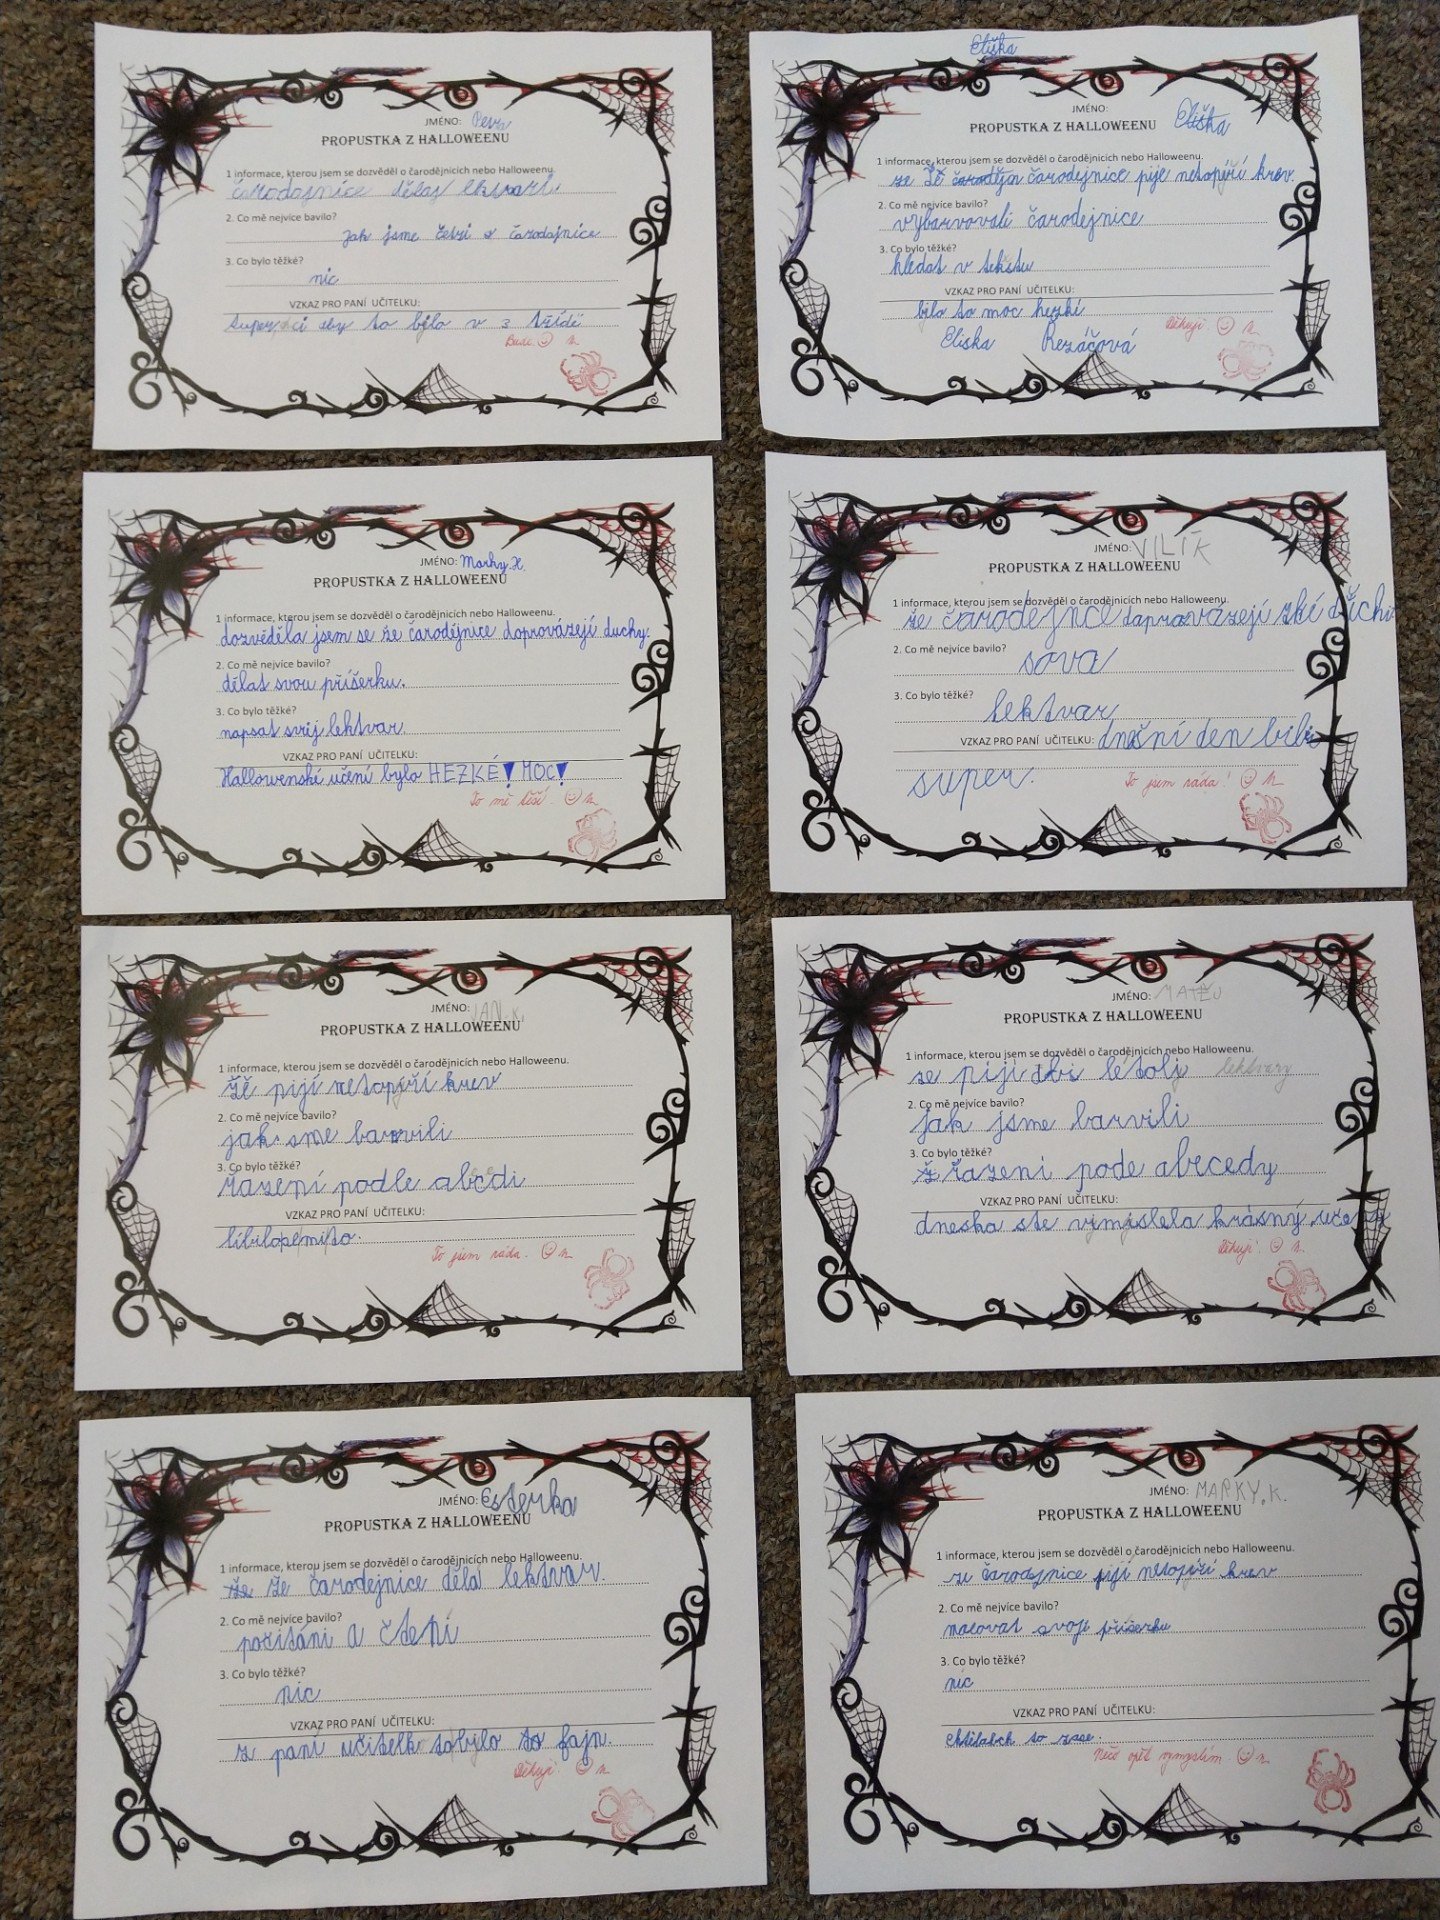 JMÉNO:
PROPUSTKA Z HALLOWEENU
1 informace, kterou jsem se dozvěděl o čarodějnicích nebo Halloweenu.
čarodajnice dělaj lektvari
2. Co mě nejvíce bavilo?
jak jsme četzi o čarodajnice
3. Co bylo těžké?
nic
VZKAZ PRO PANÍ UČITELKU:
super, ci aby to bylo v 3 třídě
Bude. ☺
Eliška
JMÉNO: Eliška
PROPUSTKA Z HALLOWEENU
1 informace, kterou jsem se dozvěděl o čarodějnicích nebo Halloweenu.
že čarodejnice pije netopýří krev.
2. Co mě nejvíce bavilo?
vybarvovali čarodejnice
3. Co bylo těžké?
hledat v tekstu
VZKAZ PRO PANÍ UČITELKU:
bilo to moc hezkí
Děkuji. ☺
Eliska Rezáčová
JMÉNO: Marky.H
PROPUSTKA Z HALLOWEENU
1 informace, kterou jsem se dozvěděl o čarodějnicích nebo Halloweenu.
dozvěděla jsem se že čarodějnice doprovázejí duchy.
2. Co mě nejvíce bavilo?
dělat svou příšerku.
3. Co bylo těžké?
napsat svůj lektvar
VZKAZ PRO PANÍ UČITELKU:
Hallowenské učení bylo HEZKÉ! MOC!
To mě těší. ☺
JMÉNO: VILÍK
PROPUSTKA Z HALLOWEENU
1 informace, kterou jsem se dozvěděl o čarodějnicích nebo Halloweenu.
že čarodejnce dapravázejí zlé dŭchi
2. Co mě nejvíce bavilo?
sova
3. Co bylo těžké?
lektvar
VZKAZ PRO PANÍ UČITELKU: dnešní den bil
super.
To jsem ráda! ☺
JMÉNO: JAN.K.
PROPUSTKA Z HALLOWEENU
1 informace, kterou jsem se dozvěděl o čarodějnicích nebo Halloweenu.
žě pijí netopýří krev
2. Co mě nejvíce bavilo?
jak sme barvili
3. Co bylo těžké?
řazení podle abcdi
VZKAZ PRO PANÍ UČITELKU:
líbilopemito.
To jsem ráda. ☺
JMÉNO: MATĚJ
PROPUSTKA Z HALLOWEENU
1 informace, kterou jsem se dozvěděl o čarodějnicích nebo Halloweenu.
se pijí lektvary
2. Co mě nejvíce bavilo?
jak jsme barvili
3. Co bylo těžké?
řazeni pode abecedy
VZKAZ PRO PANÍ UČITELKU:
dneska ste vymyslela krásný
Děkuji. ☺
JMÉNO: Esterka
PROPUSTKA Z HALLOWEENU
1 informace, kterou jsem se dozvěděl o čarodějnicích nebo Halloweenu.
že že čarodejnice děla lektvar.
2. Co mě nejvíce bavilo?
počitáni a čteni
3. Co bylo těžké?
nic
VZKAZ PRO PANÍ UČITELKU:
z paní učitelk tobylo to fajn.
Děkuji. ☺
JMÉNO: MARKY.K.
PROPUSTKA Z HALLOWEENU
1 informace, kterou jsem se dozvěděl o čarodějnicích nebo Halloweenu.
že čarodejnice pijí netopíří krev
2. Co mě nejvíce bavilo?
malovat svojí příšerku
3. Co bylo těžké?
nic
VZKAZ PRO PANÍ UČITELKU:
chtilabch to zase.
Něco opět vymyslím. ☺